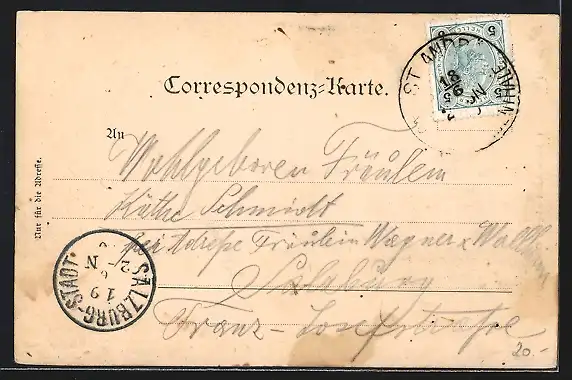 5 5
ST. ANDR
13
6
Correspondenz-Karte.
An
Wohlgeboren Fräulein
Käthe Schmidt
per Adresse Fräulein Wagner
Salzburg
Franz-Josefstrasse
Nur für die Adresse.
SALZBURG-STADT.
19
6
N
20.-